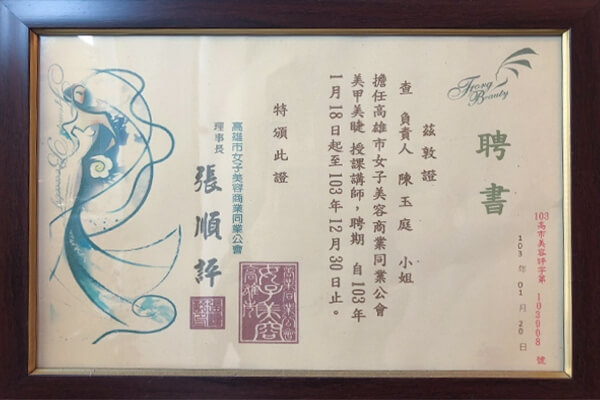 Trong
Beauty
聘書
103高市美容評字第 103008 號
103 年 01 月 20 日
茲敦證
查 負責人 陳玉庭 小姐
擔任高雄市女子美容商業同業公會
美甲美睫 授課講師，聘期 自103年
1月18日起至103年12月30日止。
特頒此證
高雄市女子美容商業同業公會
理事長 張順評